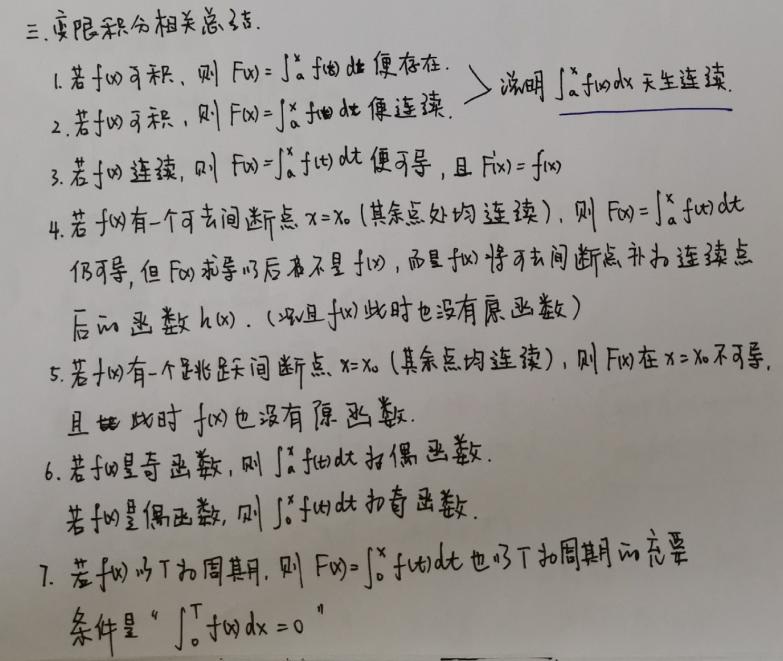 三.变限积分相关总结.
1.若f(x)可积、则 F(x)=∫ₐˣ f(t) dt 便存在.
2.若f(x)可积，则 F(x)=∫ₐˣ f(t) dt 便连续.
> 说明 ∫ₐˣ f(x)dx 天生连续.
3.若f(x)连续,则 F(x)=∫ₐˣ f(t)dt 便可导,且 F'(x)=f(x)
4.若f(x)有一个可去间断点 x=x₀(其余点处均连续),则 F(x)=∫ₐˣ f(t)dt
仍可导,但F(x)求导以后不是f(x),而是f(x)将可去间断点补为连续点
后的函数h(x).(况且f(x)此时也没有原函数)
5.若f(x)有一个跳跃间断点 x=x₀(其余点均连续),则F(x)在x=x₀不可导,
且此时f(x)也没有原函数.
6.若f(x)是奇函数,则 ∫ₐˣ f(t)dt 为偶函数.
若f(x)是偶函数,则 ∫₀ˣ f(t)dt 为奇函数.
7.若f(x)以T为周期,则 F(x)=∫₀ˣ f(t)dt 也以T为周期的充要
条件是"∫₀ᵀ f(x)dx=0"